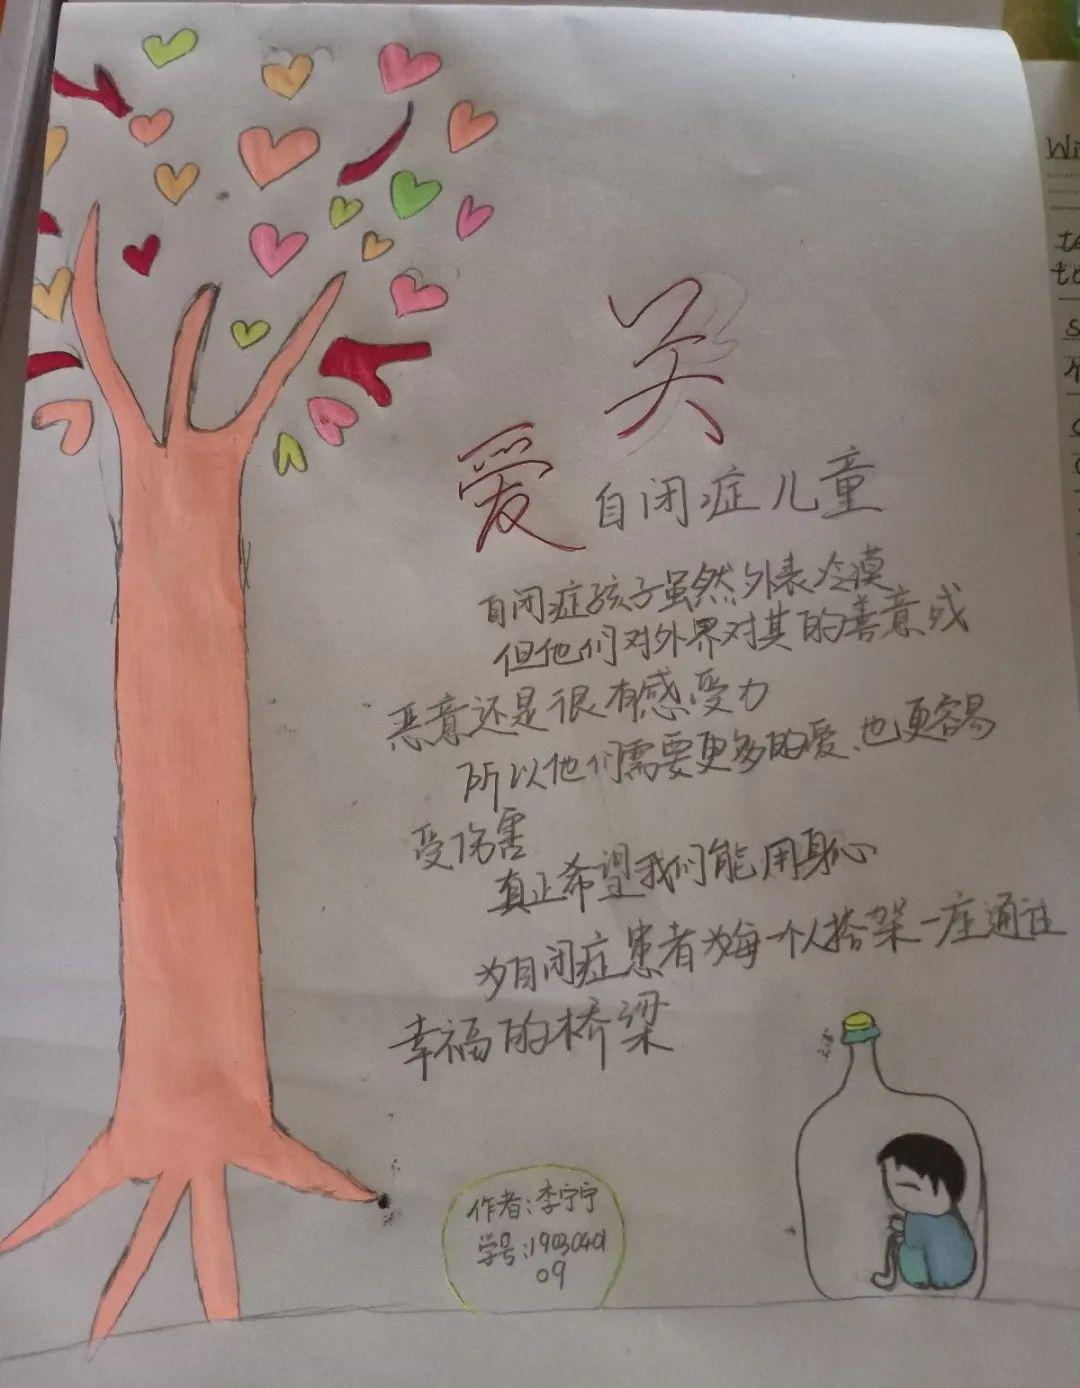 关
爱 自闭症儿童
自闭症孩子虽然外表冷漠
但他们对外界对其的善意或
恶意还是很有感受力
所以他们需要更多的爱、也更容易
受伤害
真正希望我们能用身心
为自闭症患者为每一个人搭架一座通往
幸福的桥梁
作者:李宁宁
学号:19030401
09